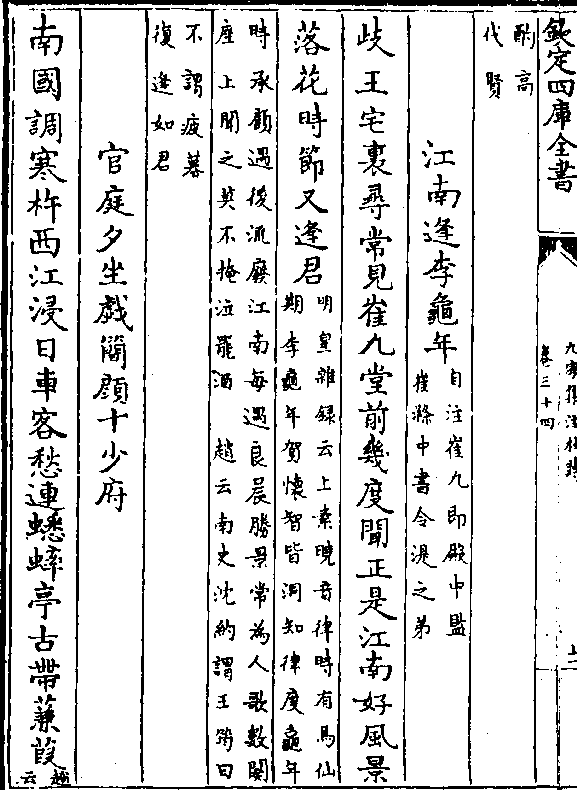 欽定四庫全書
九家集注杜詩
卷三十四
酌高
代賢
江南逢李龜年自注崔九即殿中監
崔滌中書令湜之弟
歧王宅裏尋常見崔九堂前幾度聞正是江南好風景
落花時節又逢君明皇雜録云上素曉音律時有馬仙
期李龜年賀懷智皆洞知律度龜年
時承顧遇後流廢江南每遇良晨勝景常為人歌數闋
座上聞之莫不掩泣罷酒　趙云南史沈約謂王筠曰
不謂疲暮
復逢如君
官庭夕坐戯簡顔十少府
南國調寒杵西江浸日車客愁連蟋蟀亭古帶蒹葭趙
云